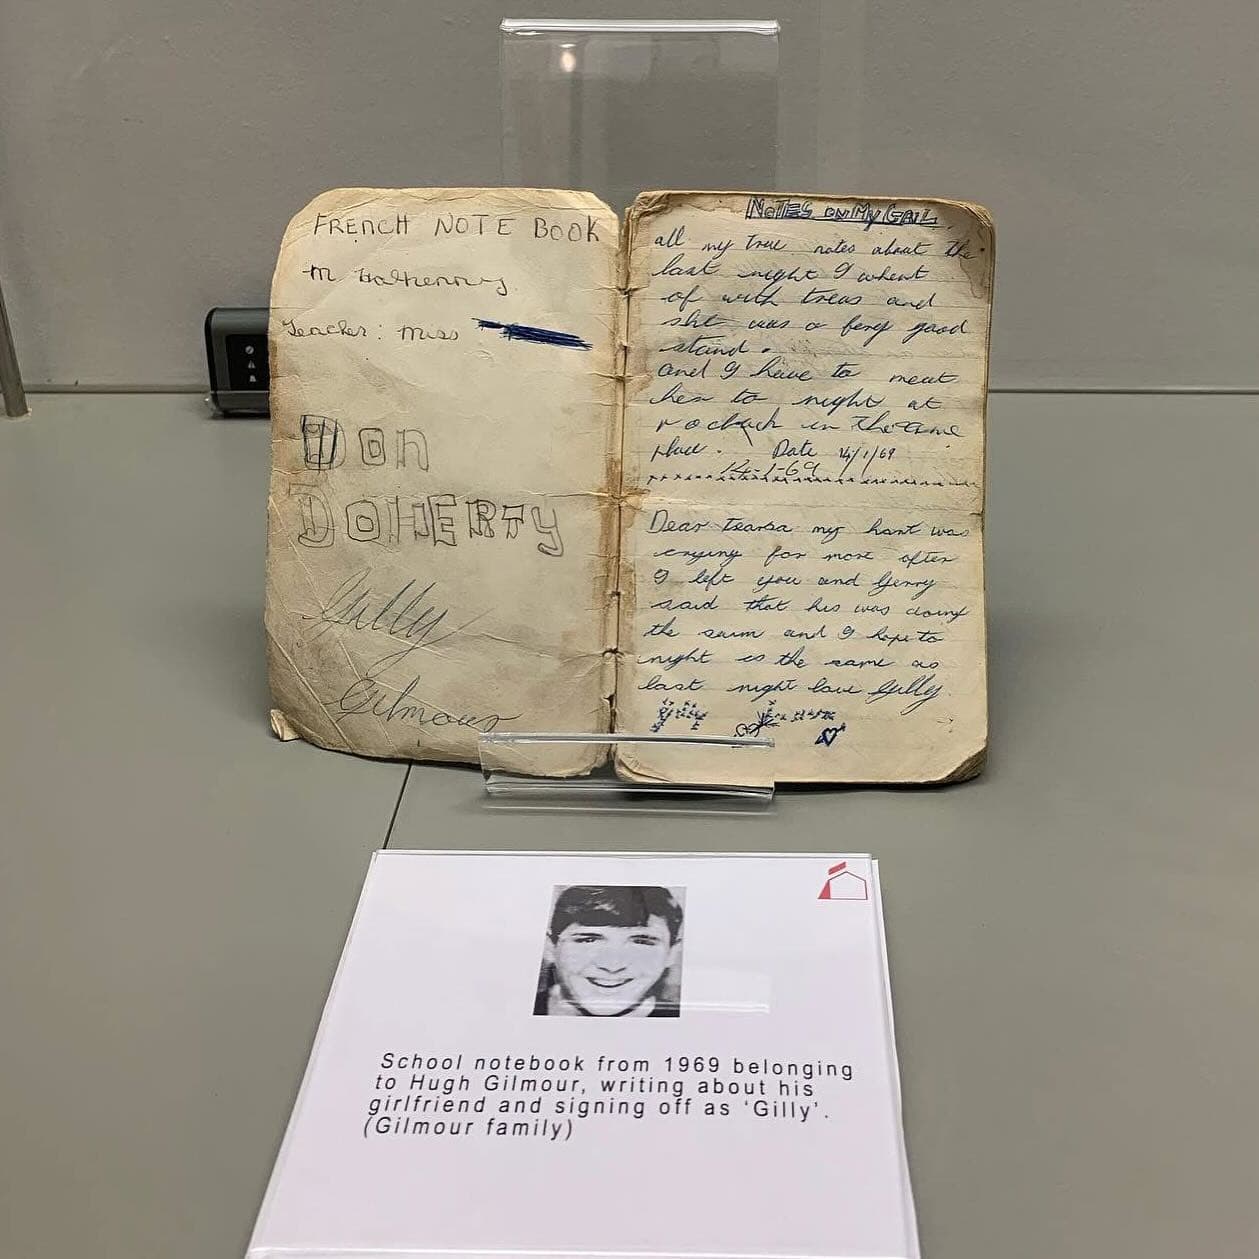 FRENCH NOTE BOOK
M
Teacher: Miss
Don
DOHERTY
Gilly
Gilmour
NOTES ON MY GAIL
all my true notes about the
last night I whent
of with treas and
she was a fery good
stand.
and I have to meat
her to night at
in the same
place. Date 14/1/69
14-1-69
Dear tearsa my hart was
crying for more after
I left you and Gerry
said that his was doing
the saim and I hope to
night is the same as
last night love Gilly
School notebook from 1969 belonging
to Hugh Gilmour, writing about his
girlfriend and signing off as ‘Gilly’.
(Gilmour family)